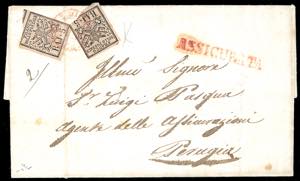 ASSICURATA
2/
Illmo Signore
Sr. Luigi Pasqua
Agente delle Assicurazioni
Perugia